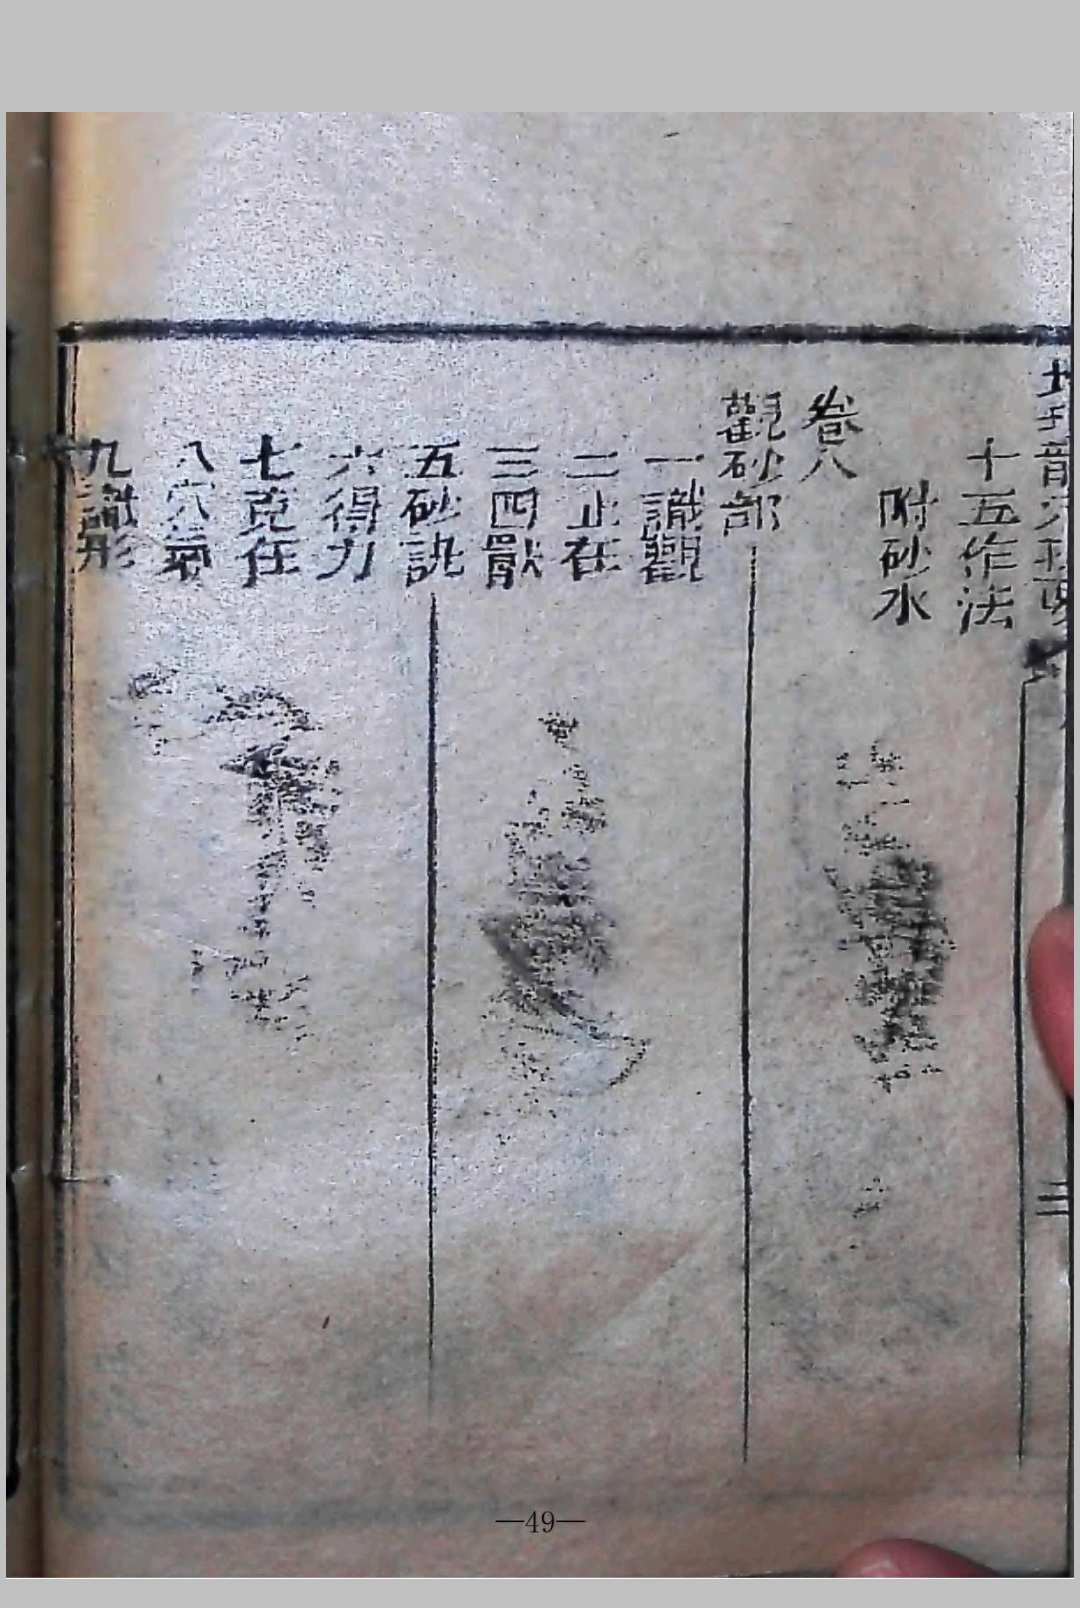 十五作法
附砂水
卷八
觀砂部
一識觀
二止在
三四獸
五砂訣
六得力
七克在
八穴氣
九識形
三
—49—